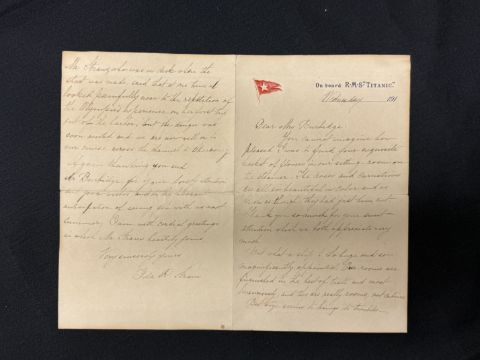 On board R.M.S. "TITANIC."
Wednesday 191
Dear Mrs Burbidge
You cannot imagine how
pleased I was to find your exquisite
basket of flowers in our sitting room on
the steamer. The roses and carnations
are all so beautiful in color and as
fresh as though they had just been cut.
Thank you so much for your sweet
attention which we both appreciate very
much.
But what a ship! So huge and so
magnificently appointed. Our rooms are
furnished in the best of taste and most
luxuriously and they are really rooms, not cabins.
But size seems to bring its troubles
Mr Straus who was on deck when the
start was made, said that at one time it
looked painfully near to the repetition of
the Olympic's experience on her first trip
out of the harbor, but the danger was
soon averted and we are now well on to
our course across the channel to Cherbourg
Again thanking you and
Mr Burbidge for your lovely attention
and good wishes and in the pleasant
anticipation of seeing you with us next
summer, I am with cordial greetings
in which Mr Straus heartily joins
Very sincerely yours
Ida R. Straus